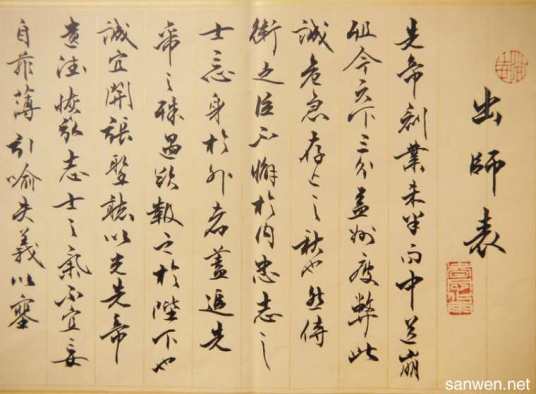 出師表
先帝創業未半而中道崩
殂今天下三分益州疲弊此
誠危急存亡之秋也然侍
衛之臣不懈於内忠志之
士忘身於外者蓋追先
帝之殊遇欲報之於陛下也
誠宜開張聖聽以光先帝
遺德恢弘志士之氣不宜妄
自菲薄引喻失義以塞
sanwen.net